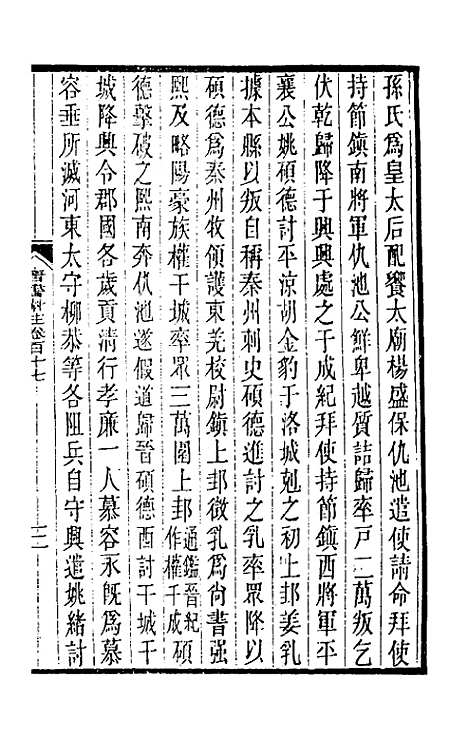 孫氏爲皇太后配饗太廟楊盛保仇池遣使請命拜使
持節鎮南將軍仇池公鮮卑越質詰歸率戸二萬叛乞
伏乾歸降于興興處之于成紀拜使持節鎮西將軍平
襄公姚碩德討平涼胡金豹于洛城剋之初上邽姜乳
據本縣以叛自稱秦州刺史碩德進討之乳率眾降以
碩德爲秦州牧領護東羌校尉鎮上邽徵乳爲尚書强
熙及略陽豪族權干城率眾三萬圍上邽通鑑晉紀作權千成碩
德擊破之熙南奔仇池遂假道歸晉碩德西討干城干
城降興令郡國各歲貢清行孝廉一人慕容永既爲慕
容垂所滅河東太守柳恭等各阻兵自守興遣姚緒討
晉書斠注卷百十七
二